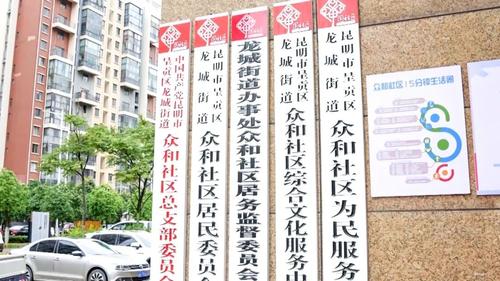 中国共产党昆明市
呈贡区龙城街道
众和社区总支部委员会
昆明市呈贡区
龙城街道
众和社区居民委员会
龙城街道办事处众和社区居务监督委员会
昆明市呈贡区
龙城街道
众和社区综合文化服务中
昆明市呈贡区
龙城街道
众和社区为民服务
众和社区15分钟生活圈